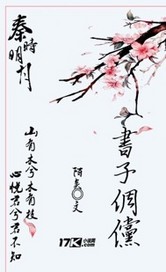 秦時明月
書子倜儻
山有木兮木有枝
心悦君兮君不知
陌玄◎文
17K小说网